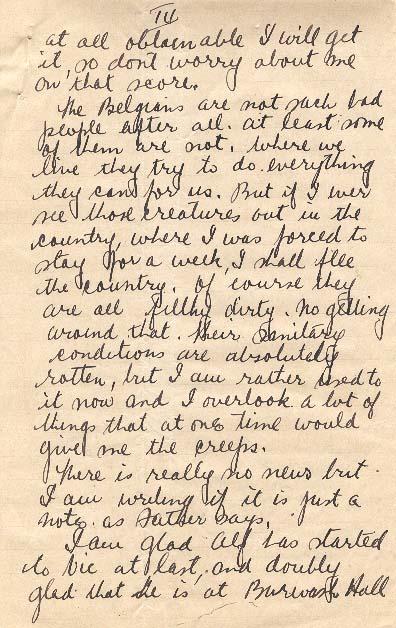 III
at all obtainable I will get
it, so dont worry about me
on that score.
The Belgians are not such bad
people after all. at least some
of them are not. where we
live they try to do everything
they can for us. But if I ever
see those creatures out in the
country, where I was forced to
stay for a week, I shall flee
the country. Of course they
are all filthy dirty. No getting
around that. their sanitary
conditions are absolutely
rotten, but I am rather used to
it now and I overlook a lot of
things that at one time would
give me the creeps.
There is really no news but
I am writing if it is just a
note, as Father says.
I am glad Alf has started
to Vic at last, and doubly
glad that He is at Burwash Hall